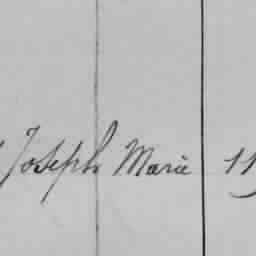 Joseph Marie 11